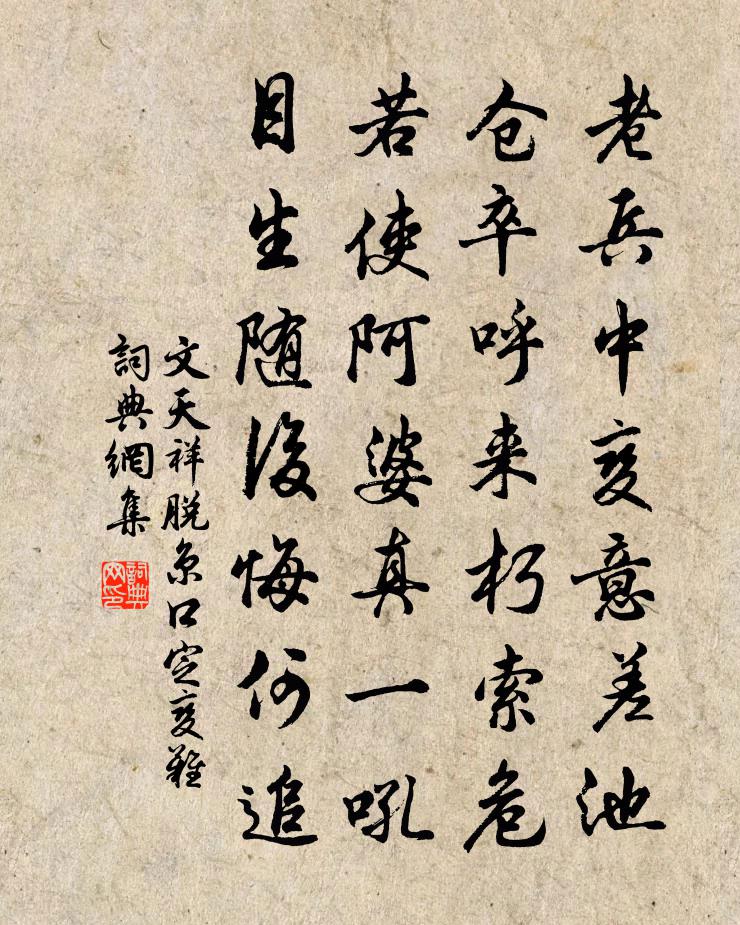 老兵中变意差池
仓卒呼来朽索危
若使阿婆真一吼
目生随後悔何追
文天祥脱京口定变难
詞典網集
詞典网